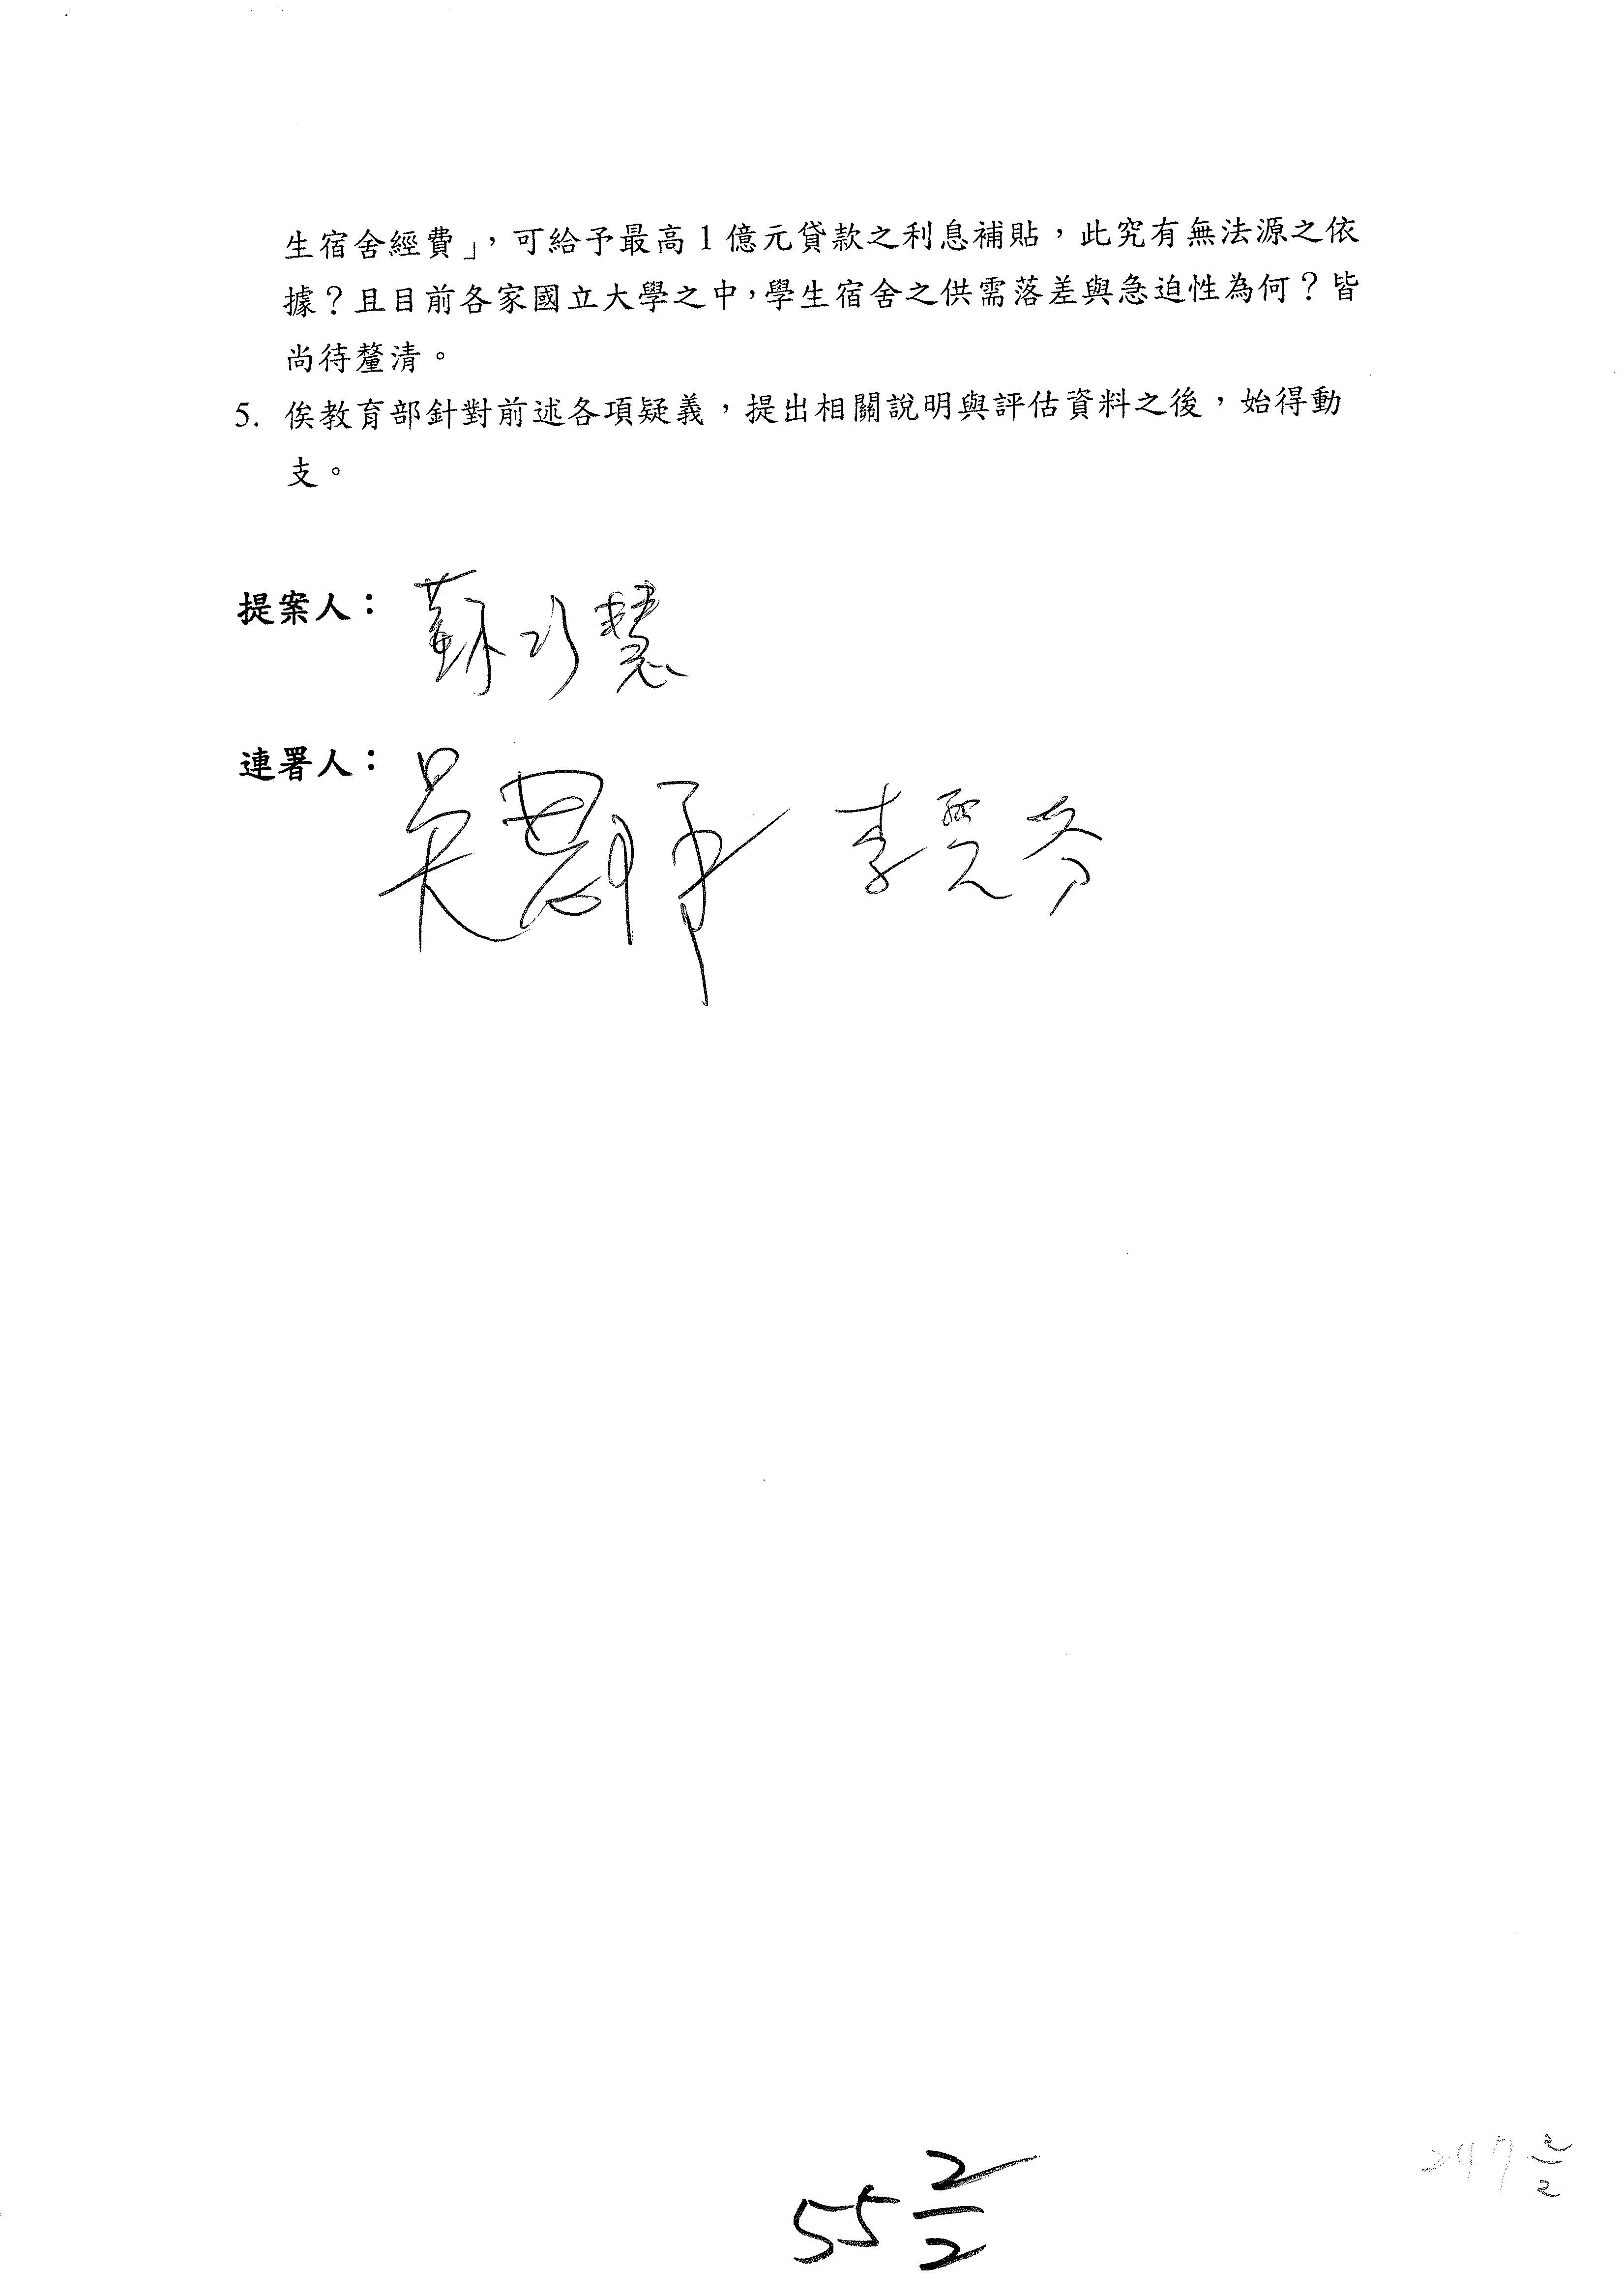 生宿舍經費」，可給予最高1億元貸款之利息補貼，此究有無法源之依
據？且目前各家國立大學之中，學生宿舍之供需落差與急迫性為何？皆
尚待釐清。
5. 俟教育部針對前述各項疑義，提出相關說明與評估資料之後，始得動
支。
提案人：蘇巧慧
連署人：吳思瑤 李麗芬
55 2/2
247 2/2